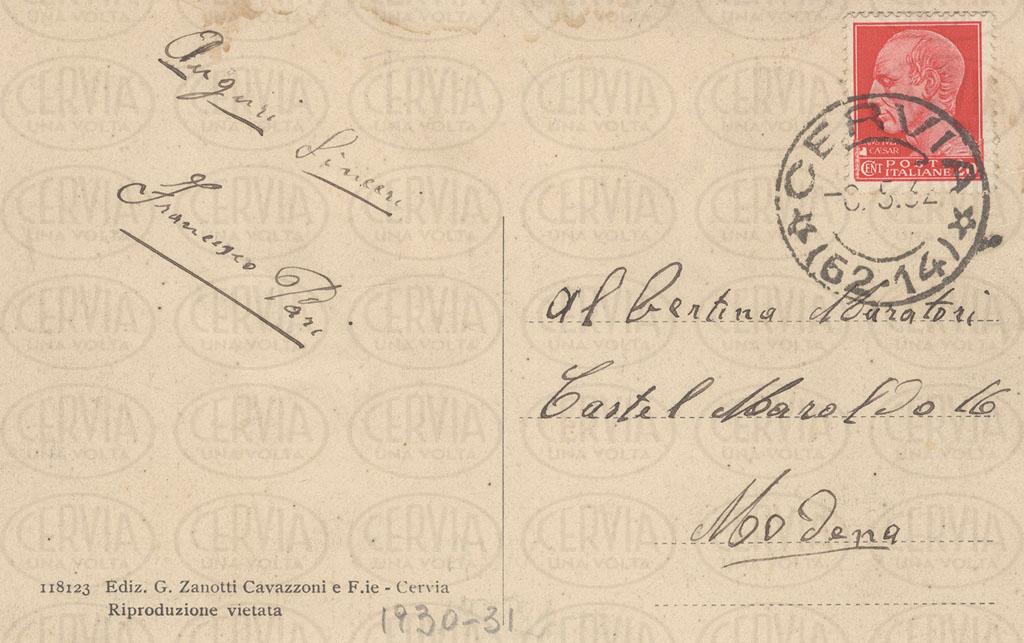 Auguri
Sinceri
Francesco Pari
CERVIA
-8.5.32
(62-14)
CÆSAR
CENT POSTE
ITALIANE 20
Albertina Muratori
Castel Maraldo 16
Modena
118123 Ediz. G. Zanotti Cavazzoni e F.ie - Cervia
Riproduzione vietata
1930-31
CERVIA
UNA VOLTA